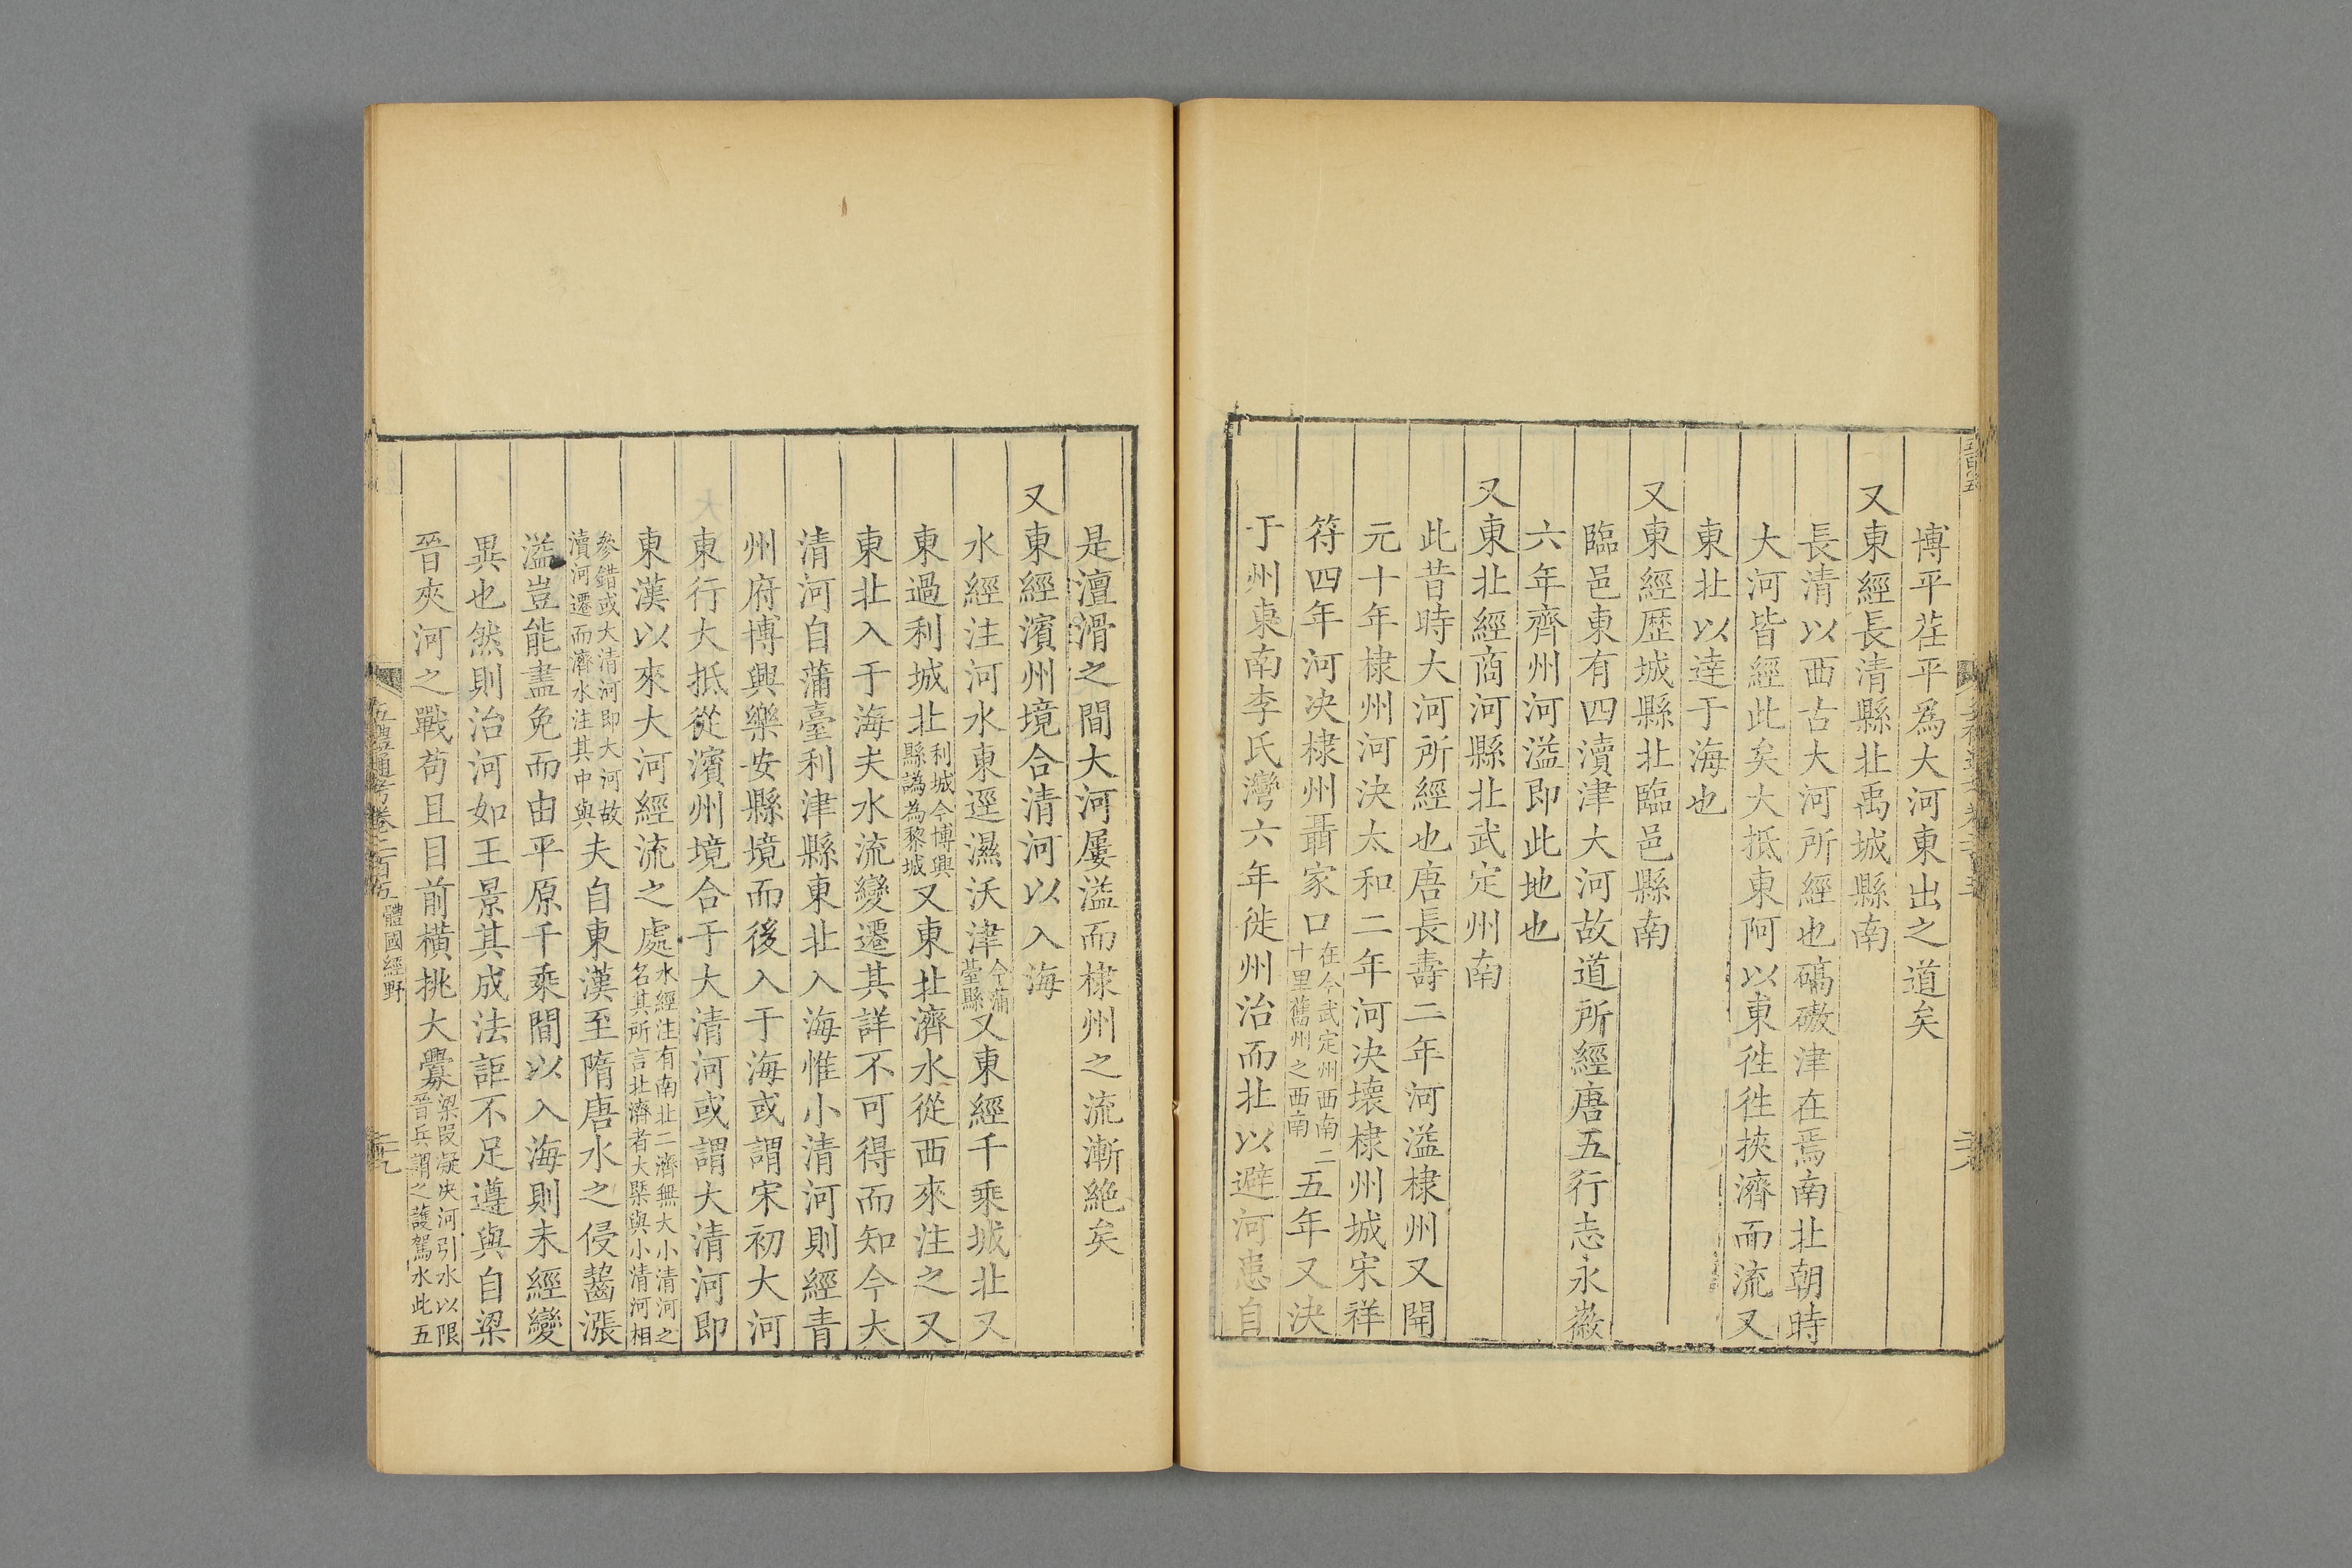 博平茌平爲大河東出之道矣
又東經長清縣北禹城縣南
長清以西古大河所經也碻磝津在焉南北朝時
大河皆經此矣大抵東阿以東徃徃挾濟而流又
東北以達于海也
又東經歴城縣北臨邑縣南
臨邑東有四瀆津大河故道所經唐五行志永薇
六年齊州河溢即此地也
又東北經商河縣北武定州南
此昔時大河所經也唐長壽二年河溢棣州又開
元十年棣州河決太和二年河決壞棣州城宋祥
符四年河決棣州聶家口在今武定州西南二十里舊州之西南五年又決
于州東南李氏灣六年徙州治而北以避河患自
是澶滑之間大河屢溢而棣州之流漸絶矣
又東經濱州境合清河以入海
水經注河水東逕濕沃津今蒲臺縣又東經千乘城北又
東過利城北利城今博興縣譌為黎城又東北濟水從西來注之又
東北入于海夫水流變遷其詳不可得而知今大
清河自蒲臺利津縣東北入海惟小清河則經青
州府博興樂安縣境而後入于海或謂宋初大河
東行大抵從濱州境合于大清河或謂大清河即
東漢以來大河經流之處水經注有南北二濟無大小清河之名其所言北濟者大槩與小清河相
參錯或大清河即大河故瀆河遷而濟水注其中與夫自東漢至隋唐水之侵齧漲
溢豈能盡免而由平原千乘間以入海則未經變
異也然則治河如王景其成法詎不足遵與自梁
晉夾河之戰苟且目前橫挑大釁梁段凝決河引水以限晉兵謂之護駕水此五
五禮通考卷二百五 體國經野
二十九